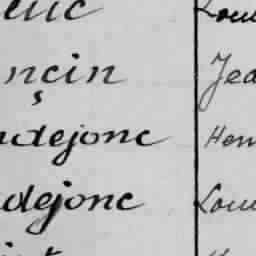 enc Lou
nçin Jea
ndejonc Hen
dejonc Lou